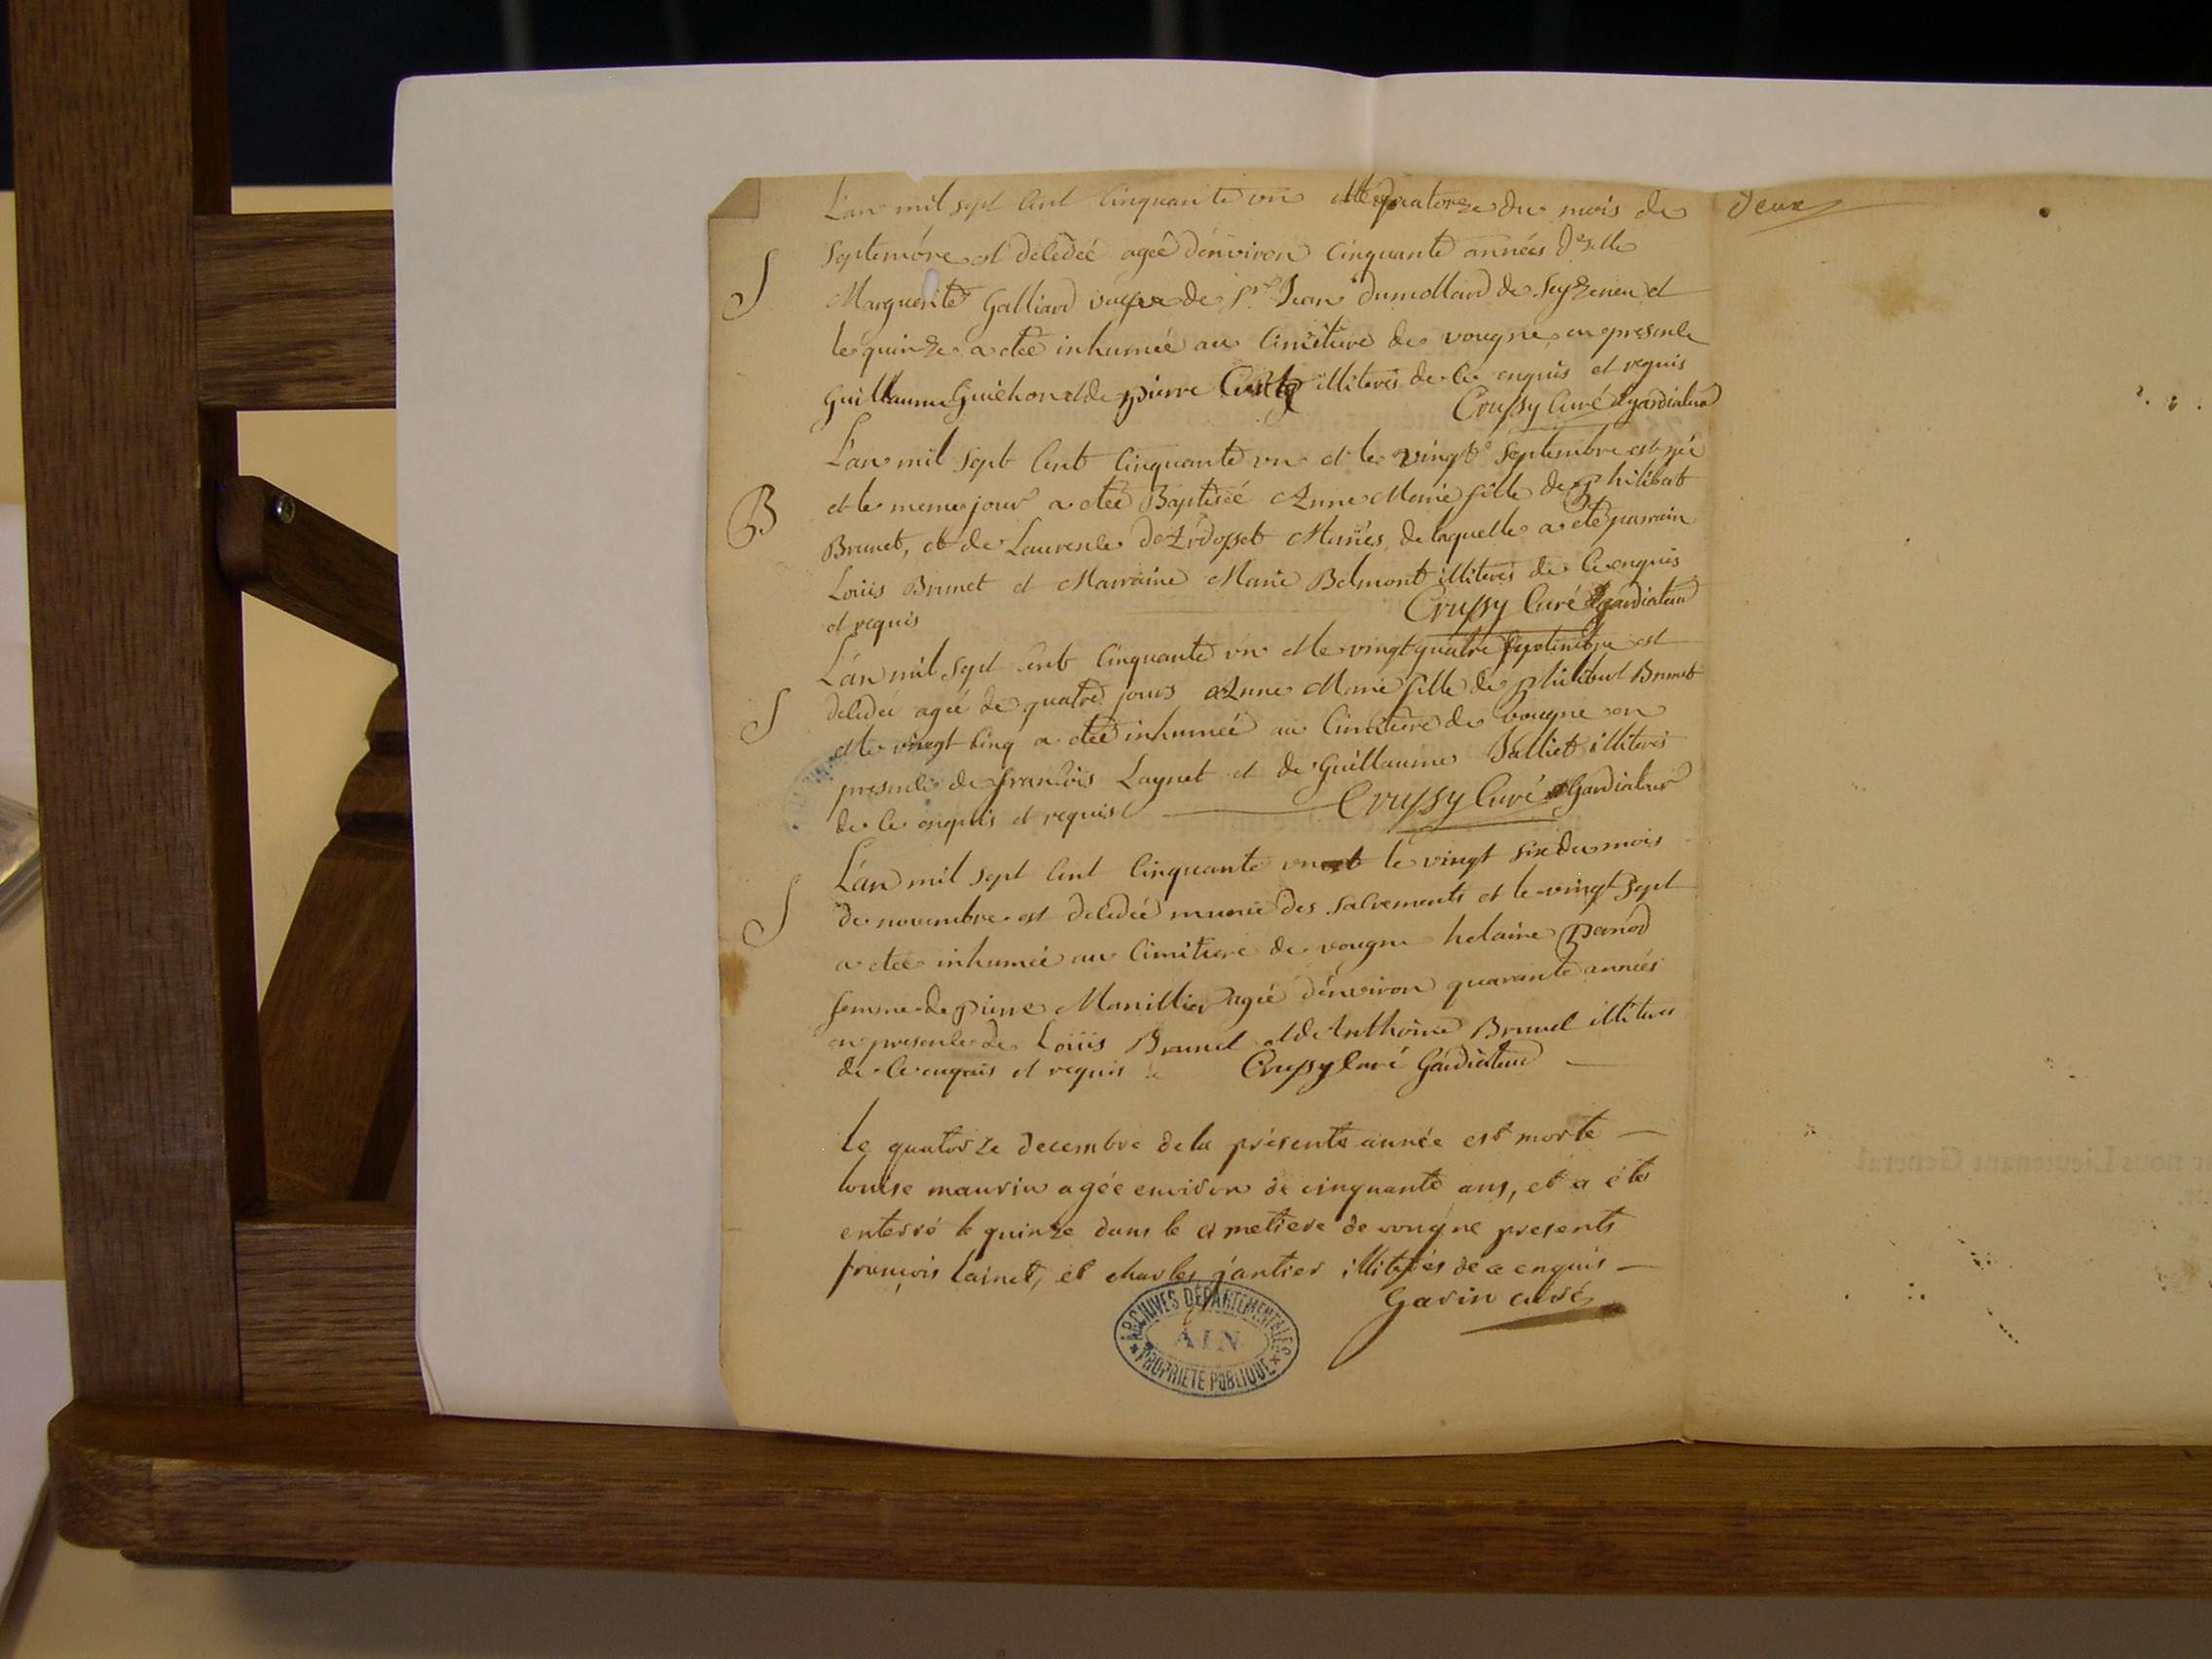 L'an mil sept cent cinquante un et le quatorze du mois de
deux
S
septembre est decedeé ageé d'environ cinquante années d.elle
Marguerite Galliard veufve de Sr. Jean dumollard de Seyzeneu et
le quinze a eteé inhumeé au cimetiere de vougne en presence
Guillaume Guichon et de pierre illiteres de ce enquis et requis
Crussy curé et gardiateur
B
L'an mil sept cent cinquante un et le vingt septembre est née
et le meme jour a eteé Baptiseé Anne Marie fille de philibert
Brunet, et de Laurence Mariés, de laquelle a eté parrain
Louis Brunet et Marraine Marie Belmont illiteres de ce enquis
et requis
Crussy curé et gardiateur
S
L'an mil sept cent cinquante un et le vingt quatre septembre est
decedeé ageé de quatre jours Anne Marie fille de philibert Brunet
et le vingt cinq a eteé inhumeé au cimetiere de vougne en
presence de francois Laynet et de Guillaume Valliet illiteres
de ce enquis et requis
Crussy curé et Gardiateur
S
L'an mil sept cent cinquante un et le vingt six du mois
de novembre est decedeé munie des sacrements et le vingt sept
a eteé inhumeé au cimitiere de vougne helaine
femme de pierre Manillier ageé d'environ quarante années
en presence de Loüis Brunel et de Anthoine Brunel illiteres
de ce enquis et requis Crussy curé Gardiateur
Le quatorze decembre de la présente année est morte
louise maurin agée environ de cinquante ans, et a été
enterré le quinze dans le cimetiere de vougne presents
françois lainet, et charles jantier illiterés de ce enquis
Garin curé
ARCHIVES DÉPARTEMENTALES
AIN
PROPRIÉTÉ PUBLIQUE
r nous Lieutenant General